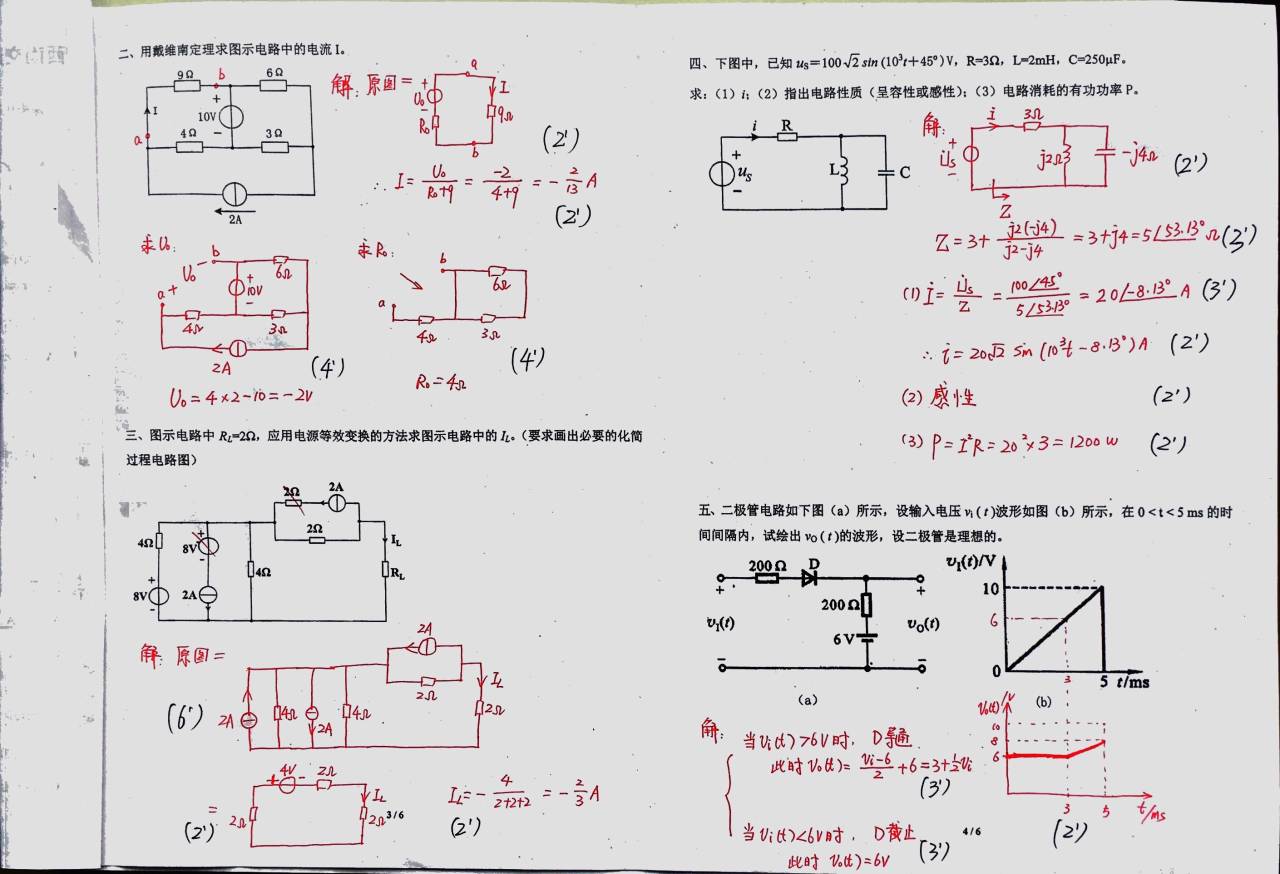 二、用戴维南定理求图示电路中的电流 I。
9Ω b 6Ω
I + 10V -
a 4Ω 3Ω
2A
解：原图 =
a
+ U₀ - I
R₀ 9Ω
b
(2')
∴ I = U₀/(R₀+9) = -2/(4+9) = -2/13 A
(2')
求U₀：
b
U₀ - 6Ω
a + + 10V -
4Ω 3Ω
2A
(4')
U₀ = 4×2-10 = -2V
求R₀：
b
6Ω
a
4Ω 3Ω
(4')
R₀ = 4Ω
三、图示电路中 R_L=2Ω，应用电源等效变换的方法求图示电路中的 I_L。（要求画出必要的化简
过程电路图）
2Ω 2A
2Ω
4Ω 8V + - I_L
4Ω R_L
+ 8V - 2A
解：原图 =
2A
2Ω I_L
(6') 2A 4Ω 2A 4Ω 2Ω
+ 4V - 2Ω
= I_L
(2') 2Ω 2Ω
I_L = -4/(2+2+2) = -2/3 A
(2')
3/6
四、下图中，已知 u_S=100√2 sin (10³t+45°)V，R=3Ω，L=2mH，C=250μF。
求：（1）i；（2）指出电路性质（呈容性或感性）；（3）电路消耗的有功功率 P。
i R
+ u_S - L C
解：
i 3Ω
+ U̇s - j2Ω -j4Ω (2')
Z
Z = 3 + j2(-j4)/(j2-j4) = 3+j4 = 5∠53.13° Ω (3')
(1) İ = U̇s/Z = 100∠45°/5∠53.13° = 20∠-8.13° A (3')
∴ i = 20√2 Sin (10³t-8.13°) A (2')
(2) 感性 (2')
(3) P = I²R = 20²×3 = 1200 W (2')
五、二极管电路如下图（a）所示，设输入电压 v_i ( t )波形如图（b）所示，在 0＜t＜5 ms 的时
间间隔内，试绘出 v_O ( t )的波形，设二极管是理想的。
200Ω D
+ +
200Ω
v_I(t) v_O(t)
6V
- -
（a）
v_I(t)/V
10
6
0 3 5 t/ms
（b）
V₀(t)/V
10
8
6
3 5 t/ms
(2')
解：当Vi(t)>6V时，D导通
此时 V₀(t) = (Vi-6)/2 + 6 = 3+½Vi
(3')
当Vi(t)<6V时，D截止
此时 V₀(t)=6V (3')
4/6